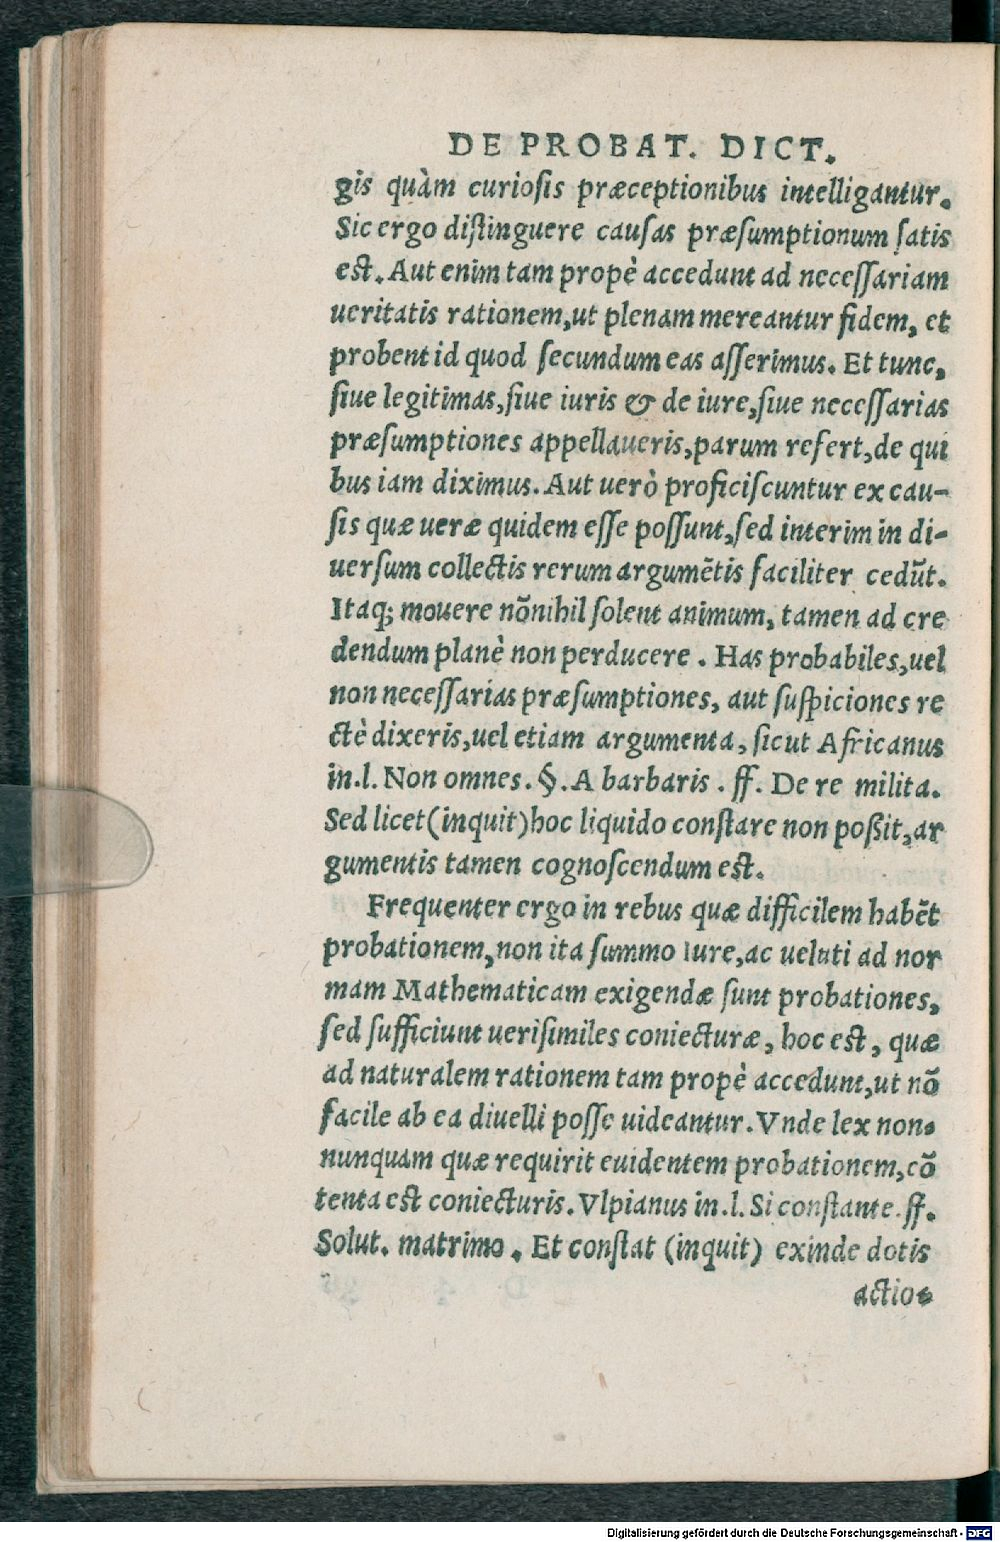 DE PROBAT. DICT.
gis quàm curiosis præceptionibus intelligantur.
Sic ergo distinguere causas præsumptionum satis
est. Aut enim tam propè accedunt ad necessariam
ueritatis rationem, ut plenam mereantur fidem, et
probent id quod secundum eas asserimus. Et tunc,
siue legitimas, siue iuris & de iure, siue necessarias
præsumptiones appellaueris, parum refert, de qui
bus iam diximus. Aut uerò proficiscuntur ex cau-
sis quæ ueræ quidem esse possunt, sed interim in di-
uersum collectis rerum argumētis faciliter cedūt.
Itaq; mouere nōnihil solent animum, tamen ad cre
dendum planè non perducere. Has probabiles, uel
non necessarias præsumptiones, aut suspiciones re
ctè dixeris, uel etiam argumenta, sicut Africanus
in.l. Non omnes. §. A barbaris. ff. De re milita.
Sed licet (inquit) hoc liquido constare non poßit, ar
gumentis tamen cognoscendum est.
Frequenter ergo in rebus quæ difficilem habēt
probationem, non ita summo iure, ac ueluti ad nor
mam Mathematicam exigendæ sunt probationes,
sed sufficiunt uerisimiles coniecturæ, hoc est, quæ
ad naturalem rationem tam propè accedunt, ut nō
facile ab ea diuelli posse uideantur. Vnde lex non-
nunquam quæ requirit euidentem probationem, cō
tenta est coniecturis. Vlpianus in.l. Si constante. ff.
Solut. matrimo. Et constat (inquit) exinde dotis
actio-
Digitalisierung gefördert durch die Deutsche Forschungsgemeinschaft - DFG